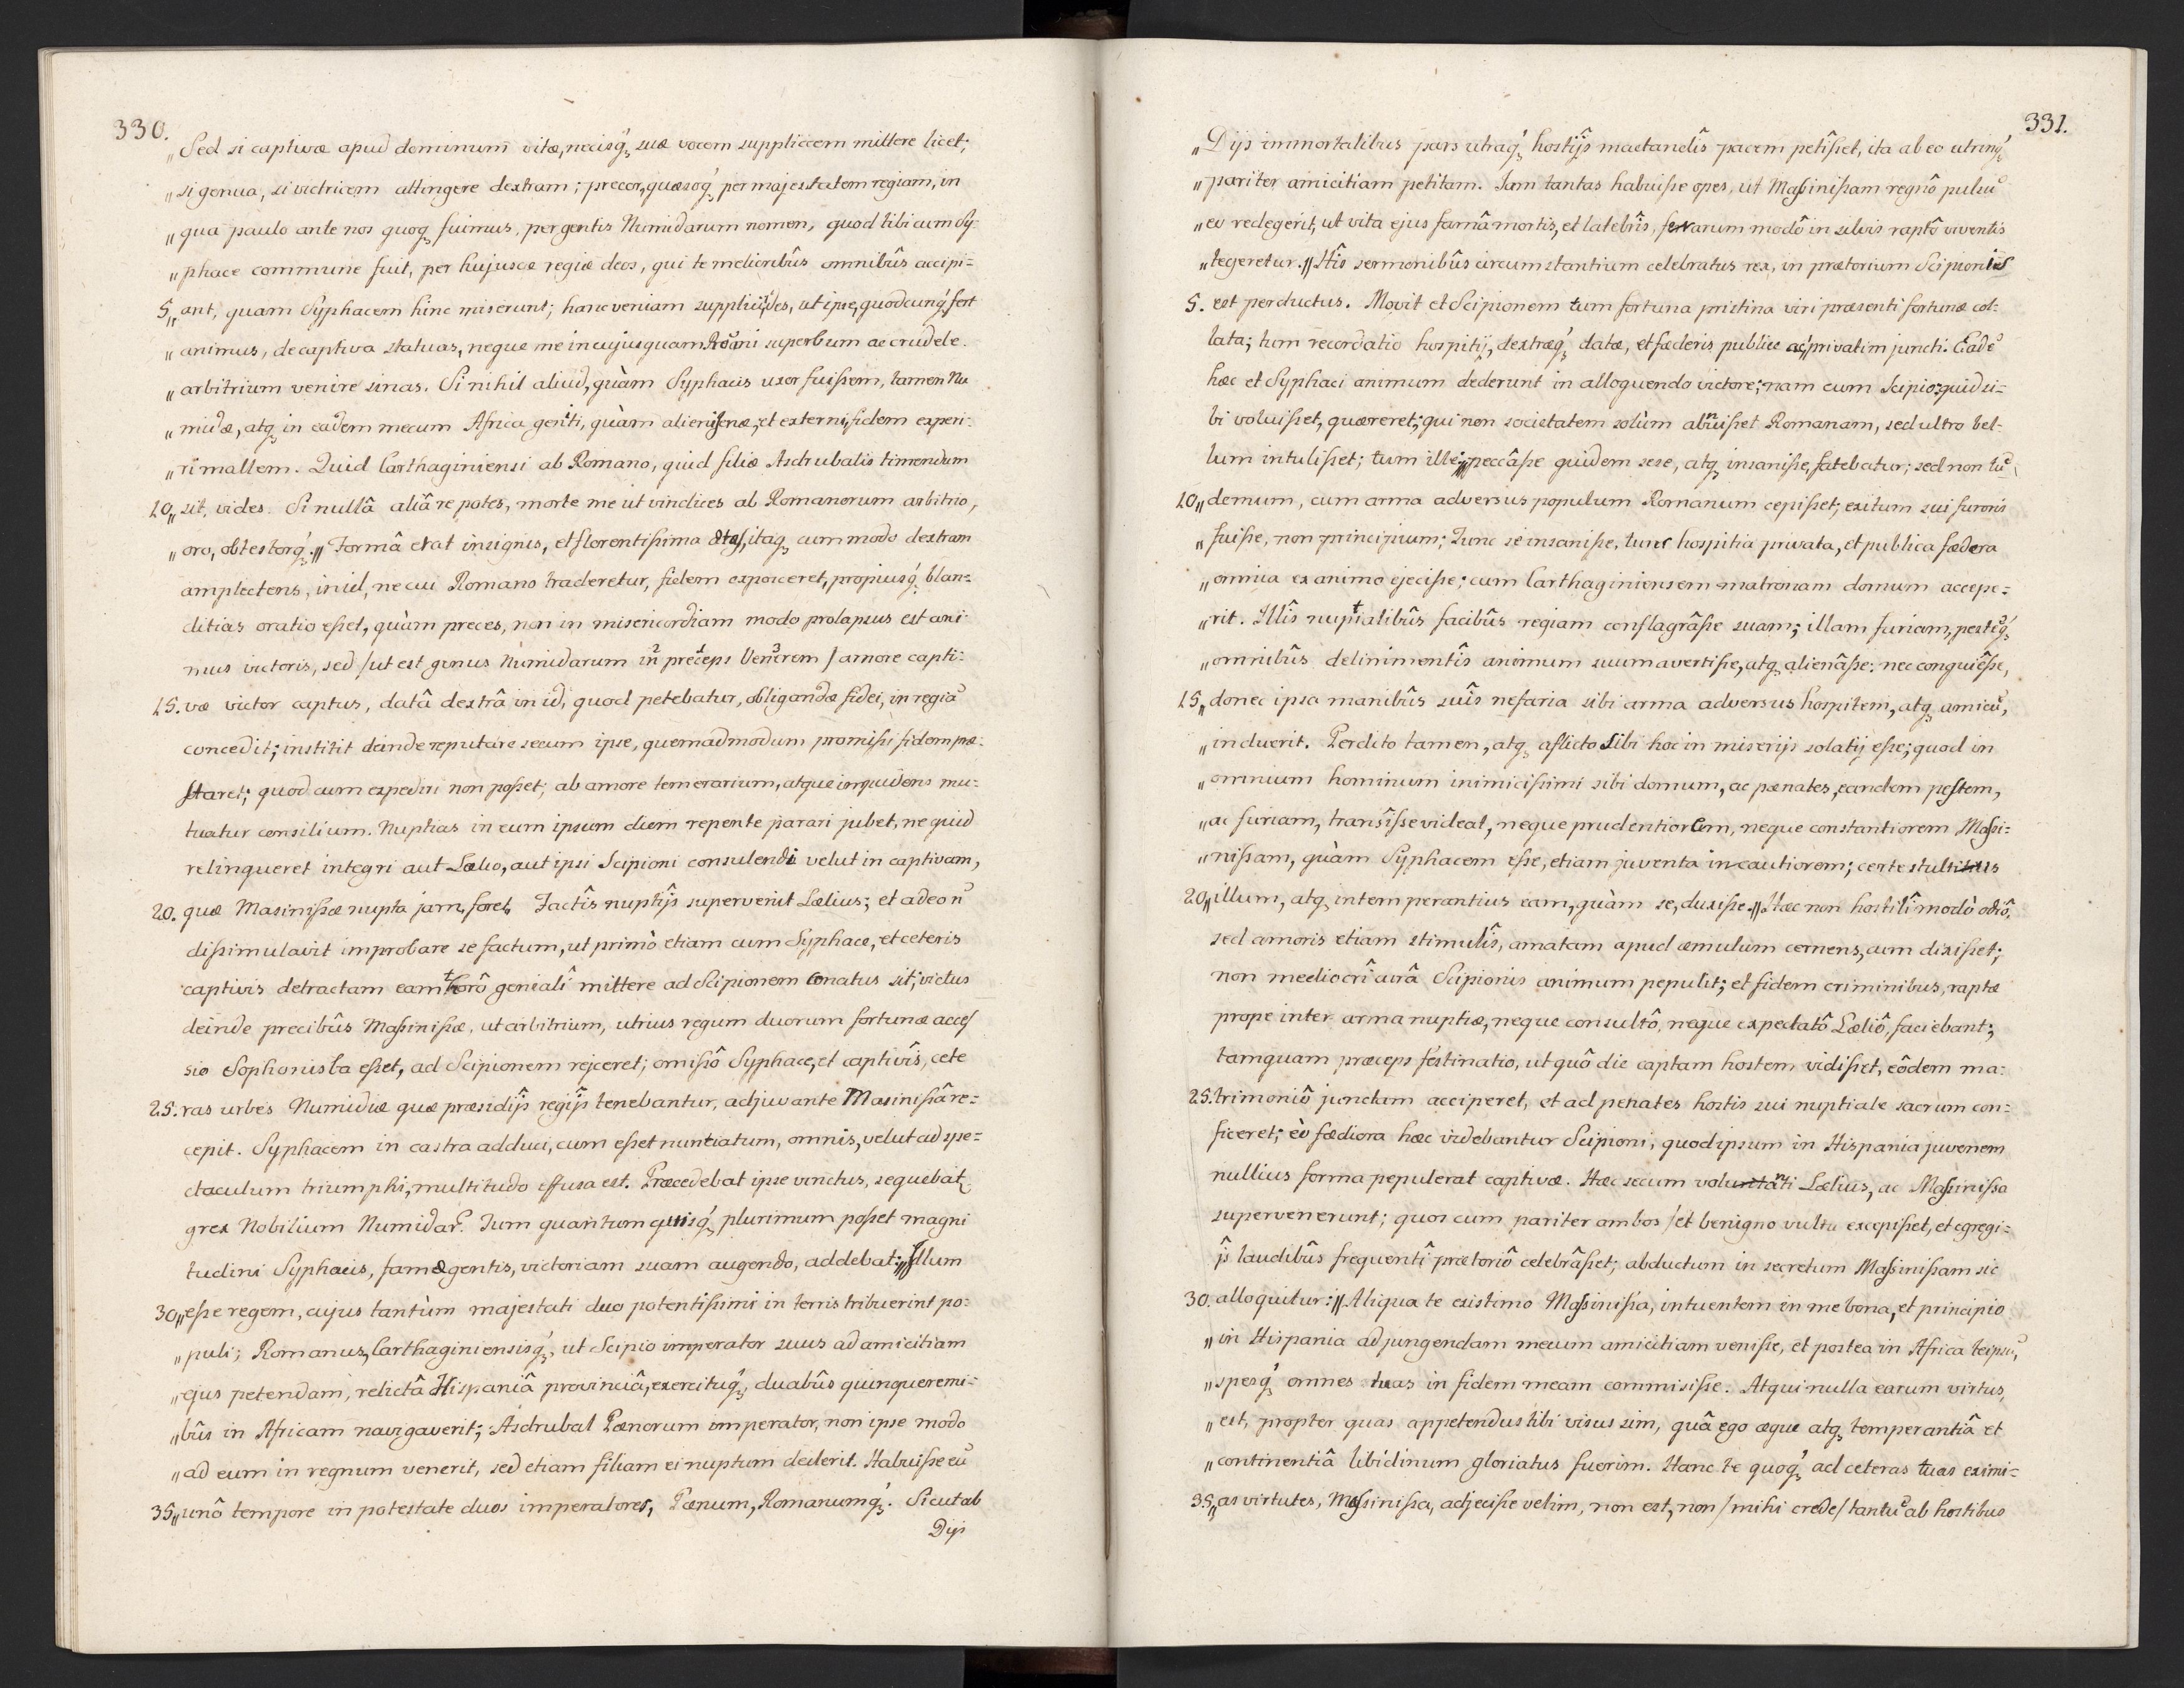 330.
„Sed si captivæ apud dominum vitæ, necisq́ʒ suæ vocem supplicem mittere licet;
„si genua, si victricem attingere dextram; precor, quæsoq́ʒ per majestatem regiam, in
„qua paulo ante nos quoqʒ fuimus, per gentis Numidarum nomen, quod tibi cum Sy-
„phace commune fuit, per hujusce regiæ deos, qui te melioribûs omnibûs accipi=
5„ant, quam Syphacem hinc miserunt; hanc veniam supplici des, ut ipse, quodcunq́ʒ fert
„animus, de captiva statuas, neque me in cujusquam Romani superbum ac crudele
„arbitrium venire sinas. Si nihil aliud, quàm Syphacis uxor fuissem, tamen Nu
„midæ, atqʒ in eadem mecum Africa geniti, quàm alienigenæ, et externi, fidem experi=
„ri mallem. Quid Carthaginiensi ab Romano, quid filiæ Asdrubalis timendum
10„sit, vides. Si nullâ aliâ re potes, morte me ut vindices ab Romanorum arbitrio,
„oro, obtestorq́ʒ.„ Formâ erat insignis, et florentissima ætas, itaqʒ cum modo dextram
amplectens, in id, ne cui Romano traderetur, fidem exposceret, propiusq́ʒ blan=
ditias oratio esset, quàm preces, non in misericordiam modo prolapsus est ani
mus victoris, sed /ut est genus Numidarum in preceps Venerem / amore capti=
15. væ victor captus, datâ dextrâ in id, quod petebatur, obligandæ fidei, in regiā
concedit; institit deinde reputare secum ipse, quemadmodum promissi fidem præ=
staret; quod cum expediri non posset; ab amore temerarium, atque impudens mu=
tuatur consilium. Nuptias in eum ipsum diem repente parari jubet, ne quid
relinqueret integri aut Lælio, aut ipsi Scipioni consulendi velut in captivam,
20. quæ Masinissæ nupta jam foret. Factîs nuptijs supervenit Lælius; et adeo ñ
dissimulavit improbare se factum, ut primò etiam cum Syphace, et ceteris
captivis detractam eam torô genialî mittere ad Scipionem conatus sit; victus
deinde precibûs Massinissæ, ut arbitrium, utrius regum duorum fortunæ acces
sio Sophonisba esset, ad Scipionem rejceret; omissô Syphace, et captivîs, cete
25. ras urbes Numidiæ quæ præsidijs regijs tenebantur, adjuvante Masinissâ re=
cepit. Syphacem in castra adduci, cum esset nuntiatum, omnis, velut ad spe=
ctaculum triumphi, multitudo effusa est. Præcedebat ipse vinctus, sequebat
grex Nobilium Numidar. Tum quantum quisq́ʒ plurimum posset magni
tudini Syphacis, famæ gentis, victoriam suam augendo, addebat: „Illum
30„esse regem, cujus tantùm majestati duo potentissimi in terris tribuerint po=
„puli; Romanus, Carthaginiensisq́ʒ, ut Scipio imperator suus ad amicitiam
„ejus petendam, relictâ Hispaniâ provinciâ, exercituq́ʒ, duabûs quinqueremi=
„bûs in Africam navigaverit; Asdrubal Pænorum imperator, non ipse modo
„ad eum in regnum venerit, sed etiam filiam ei nuptum dederit. Habuisse eū
35„unô tempore in potestate duos imperatores, Pænum, Romanumq́ʒ. Sicut ab
Dijs
331.
„Dijs immortalibus pars utraq́ʒ hostijs mactandîs pacem petîsset, ita ab eo utrinq́ʒ
„pariter amicitiam petitam. Jam tantas habuisse opes, ut Massinissam regnô pulsū
„eo redegerit, ut vita ejus famâ mortis, et latebrîs, ferarum modô in silvis raptô viventis
„tegeretur.„ Hîs sermonibûs circumstantium celebratus rex, in prætorium Scipionis
5. est perductus. Movit et Scipionem tum fortuna pristina viri præsenti fortunæ col-
lata; tum recordatio hospitij, dextræq́ʒ datæ, et fæderis publice ac privatim juncti. Eadē
hæc et Syphaci animum dederunt in alloquendo victore; nam cum Scipio: quid si=
bi voluisset, quæreret; qui non societatem solùm abnuisset Romanam, sed ultro bel-
lum intulisset; tum ille: „peccâsse quidem sese, atqʒ insanisse, fatebatur; sed non tū
10„demum, cum arma adversus populum Romanum cepisset; exitum sui furoris
„fuisse, non principium; Tunc se insanisse, tunc hospitia privata, et publica fædera
„omnia ex animo ejecisse; cum Carthaginiensem matronam domum accepe=
„rit. Illîs nuptialibûs facibûs regiam conflagrâsse suam; illam furiam, pestēq́ʒ
„omnibûs delinimentîs animum suum avertisse, atqʒ alienâsse; nec conquiêsse,
15„donec ipsa manibûs suîs nefaria sibi arma adversus hospitem, atqʒ amicū,
„induerit. Perdito tamen, atqʒ aflicto sibi hoc in miserijs solatij esse; quod in
„omnium hominum inimicissimi sibi domum, ac pænates, eandem pestem,
„ac furiam, transîsse videat, neque prudentiorem, neque constantiorem Massi=
„nissam, quàm Syphacem esse, etiam juventa incautiorem; certe stultius
20„illum, atqʒ intemperantius eam, quàm se, duxisse.„ Hæc non hostilî modò odiô,
sed amoris etiam stimulîs, amatam apud æmulum cernens, cum dixisset;
non mediocrî curâ Scipionis animum pepulit; et fidem criminibus, raptæ
prope inter arma nuptiæ, neque consultô, neque expectatô Læliô, faciebant;
tamquam præceps festinatio, ut quô die captam hostem vidisset, eôdem ma=
25. trimoniô junctam acciperet, et ad penates hostis sui nuptiale sacrum con=
ficeret; eò fædiora hæc videbantur Scipioni, quod ipsum in Hispania juvenem
nullius forma pepulerat captivæ. Hæc secum volutanti Lælius, ac Massinissa
supervenerunt; quos cum pariter ambos /et benigno vultu excepisset, et egregi=
js laudibûs frequentî prætoriô celebrâsset; abductum in secretum Massinissam sic
30. alloquitur: „Aliqua te existimo Massinissa, intuentem in me bona, et principio
„in Hispania ad jungendam mecum amicitiam venisse, et postea in Africa teipsū,
„spesq́ʒ omnes tuas in fidem meam commisisse. Atqui nulla earum virtus,
„est, propter quas appetendus tibi visus sim, quâ ego æque atqʒ temperantiâ et
„continentiâ libidinum gloriatus fuerim. Hanc te quoq́ʒ ad ceteras tuas eximi=
35„as virtutes, Massinissa, adjecisse velim, non est, non /mihi crede/ tantū ab hostibus